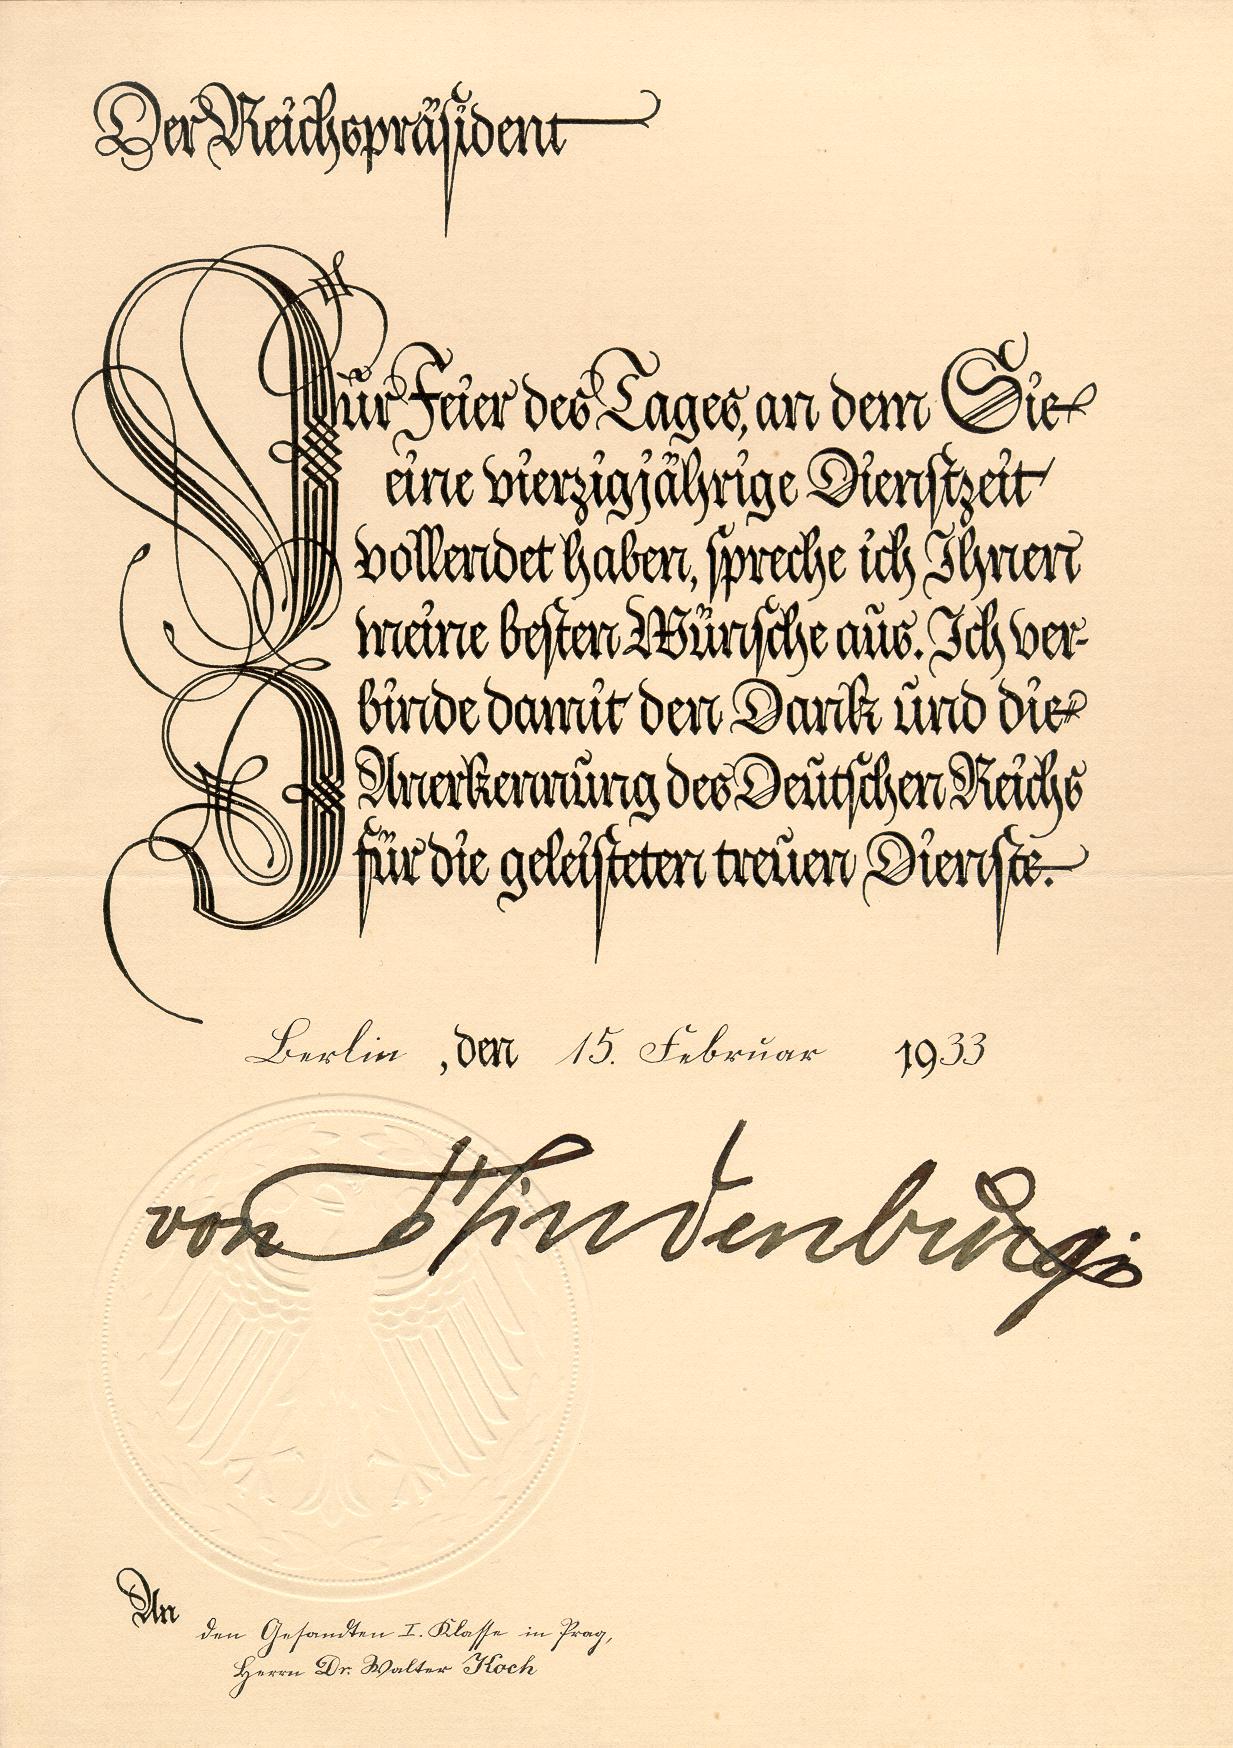 Der Reichspräsident
Zur Feier des Tages, an dem Sie
eine vierzigjährige Dienstzeit
vollendet haben, spreche ich Ihnen
meine besten Wünsche aus. Ich ver-
binde damit den Dank und die
Anerkennung des Deutschen Reichs
für die geleisteten treuen Dienste.
Berlin, den 15. Februar 1933
von Hindenburg
An
den Gesandten I. Klasse in Prag,
Herrn Dr. Walter Koch